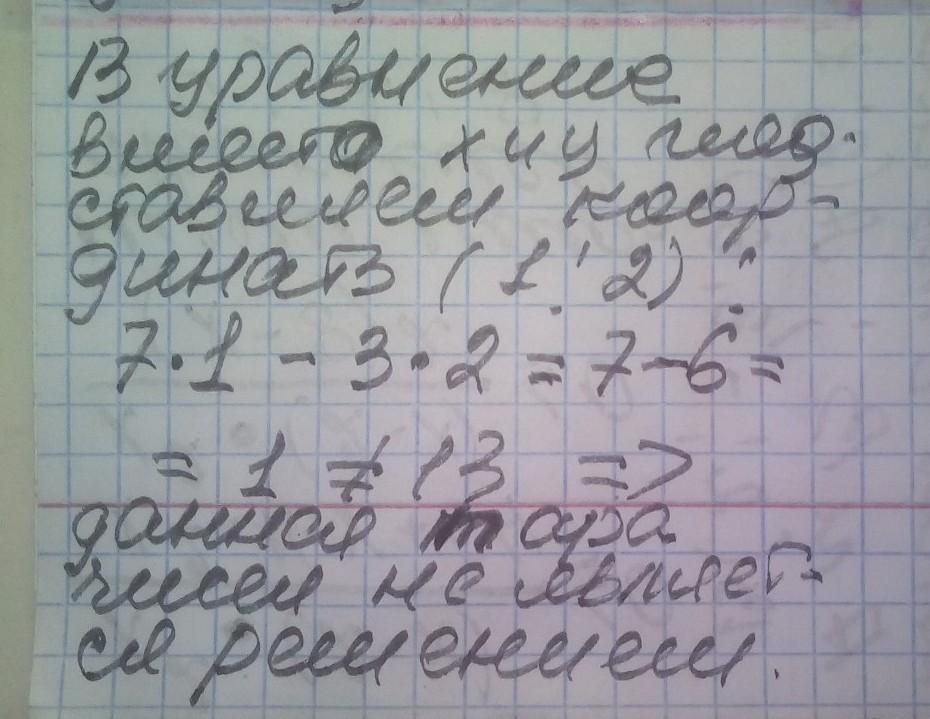 В уравнение
вместо х и у под-
ставляем коор-
динаты (1; 2):
7·1 - 3·2 = 7-6=
= 1 ≠ 13 =>
данная пара
чисел не являет-
ся решением.